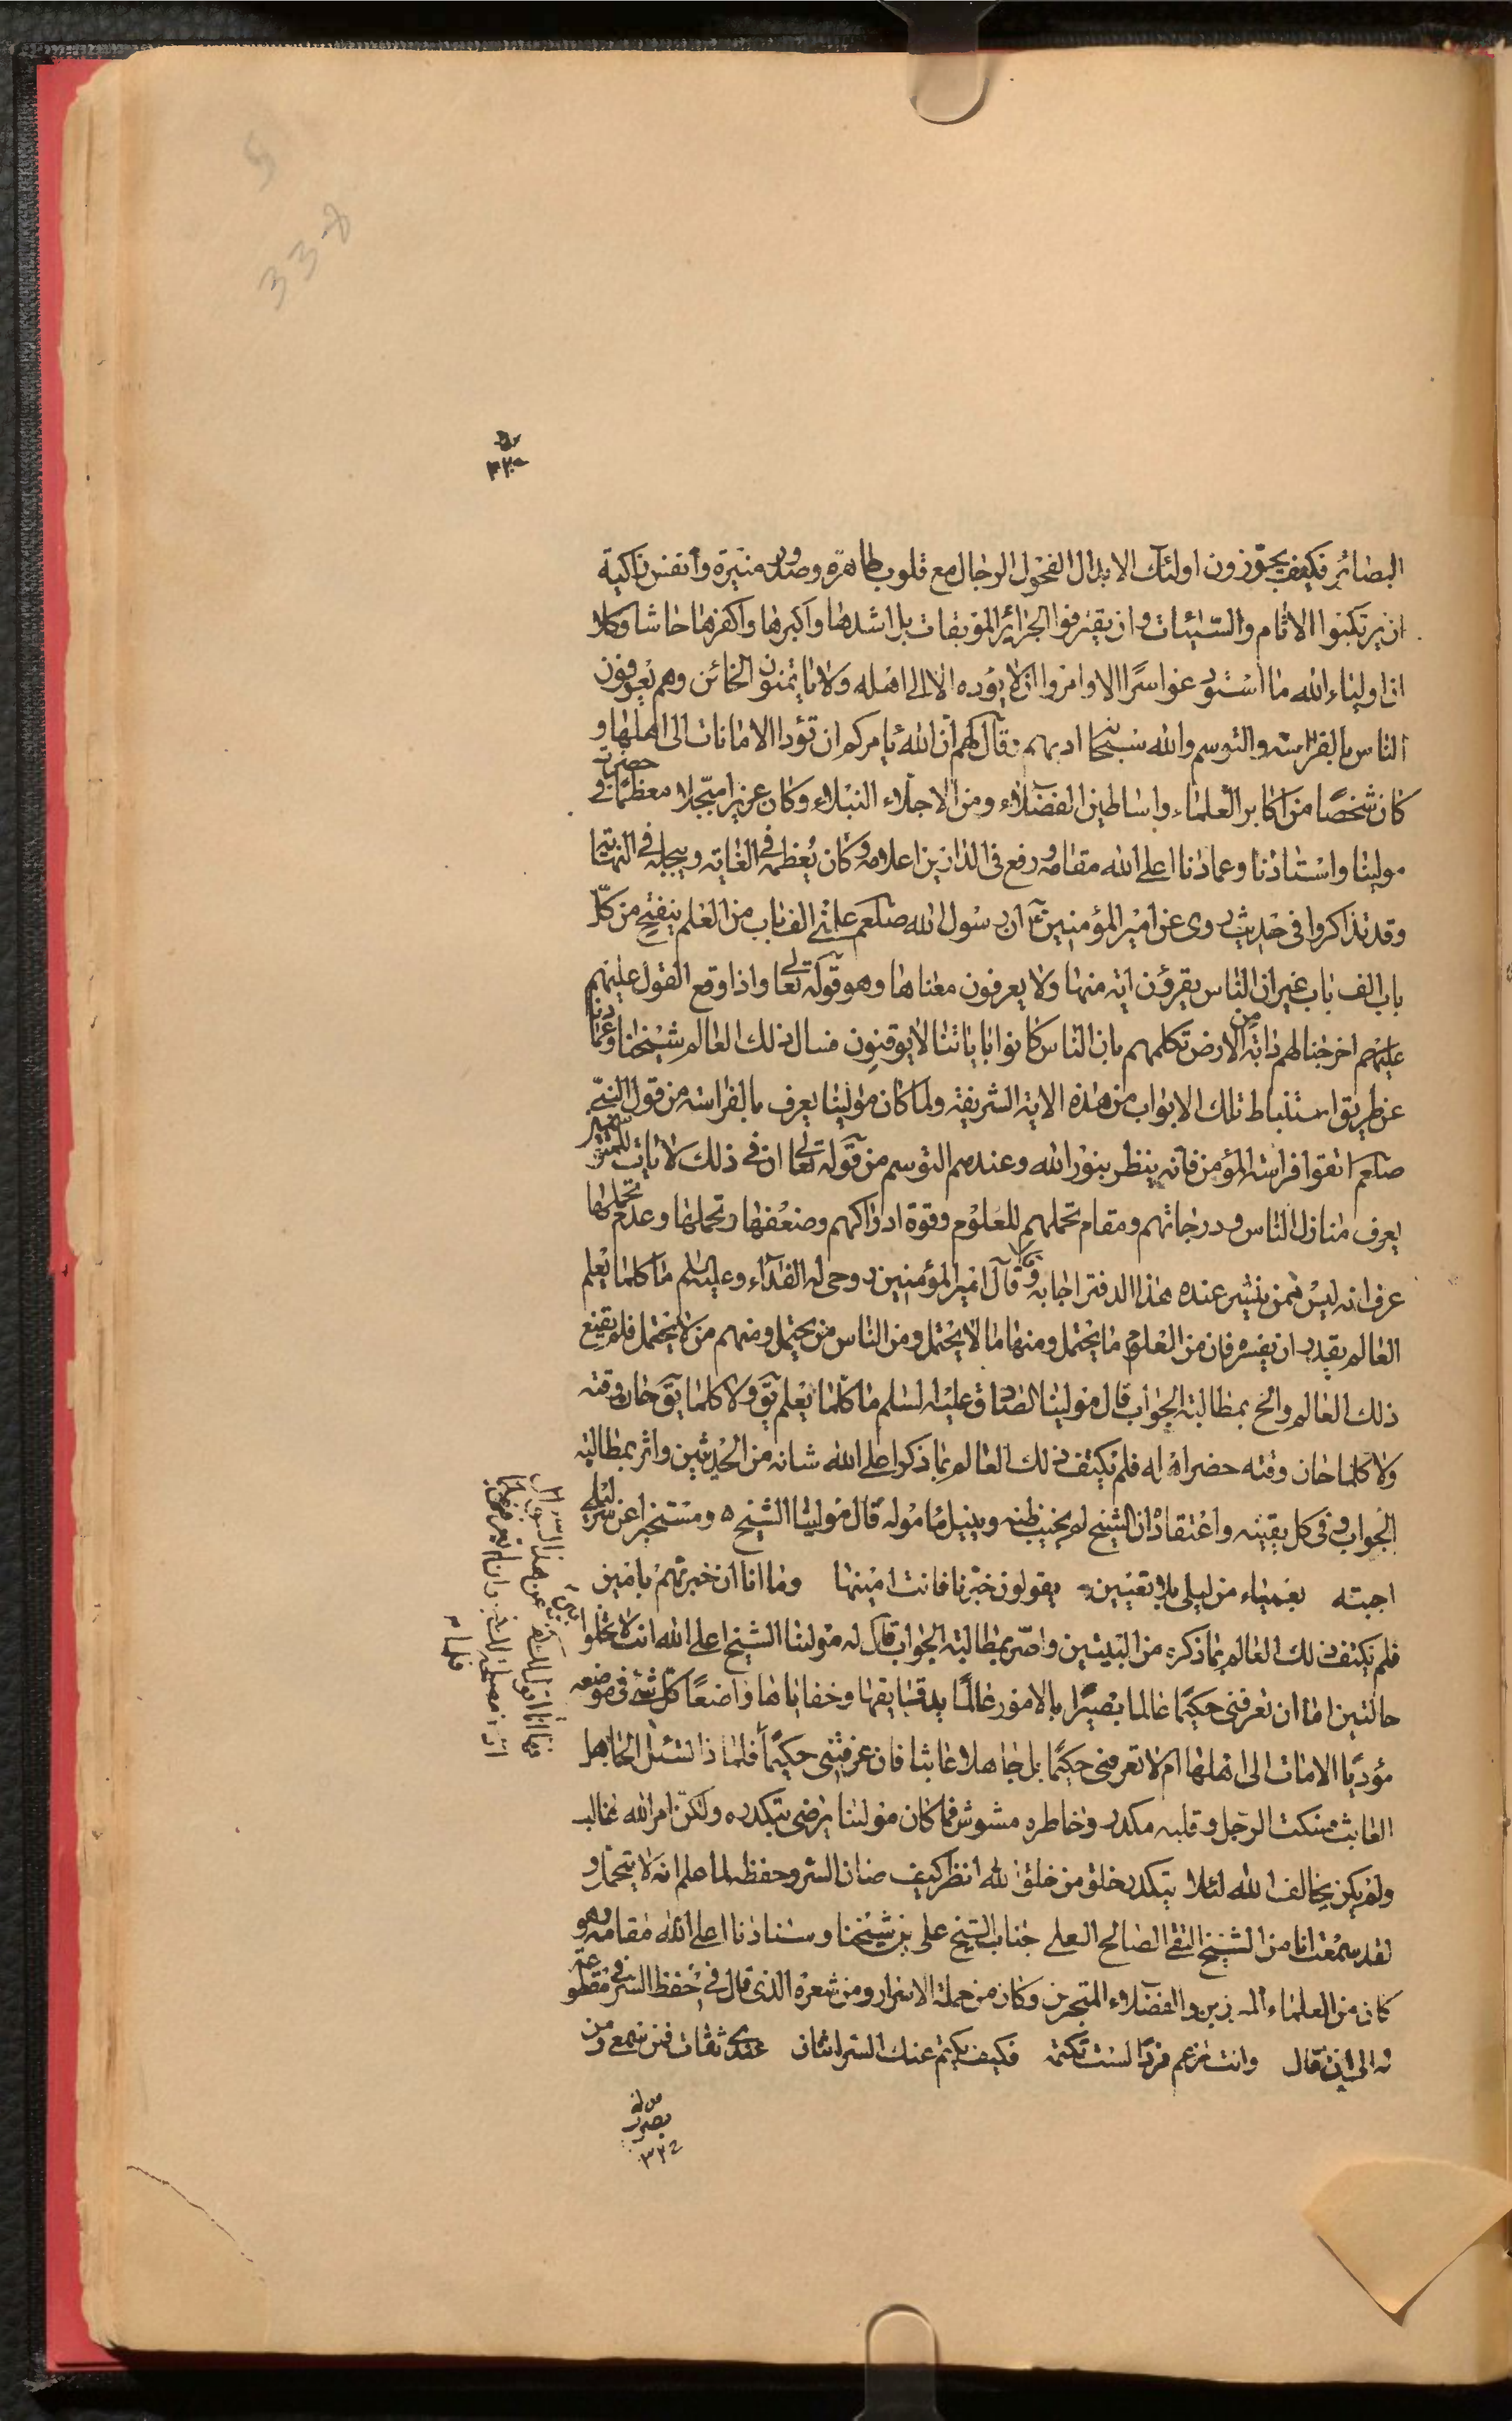 البصائر فكيف يجوّزون اولئك الابدال الفحول الرجال مع قلوب طاهرة وصدور منيرة وانفس زاكية
ان يرتكبوا الاثام والسّيئات وان يقترفوا الجرائر الموبقات بل اشدها واكبرها واكفرها حاشا وكلا
ان اولياء الله ما استودعوا سرًا الا وامروا ان لا يؤده الا الى اهله ولا يأتمنون الخائن وهم يعرفون
الناس بالفراسة والتوسم والله سبحانه ادبهم وقال لهم ان الله يأمركم ان تؤدا الامانات الى اهلها و
كان شخصًا من اكابر العلماء واساطين الفضلاء ومن الاجلاء النبلاء وكان عزيزا مبّجلا معظمًا في حضرت
مولينا واستاذنا وعمادنا اعلى الله مقامه ورفع في الدارين اعلامه وكان يُعظمه في الغاية ويبجله في النهاية
وقد تذاكروا في حديث روى عن امير المؤمنين ع ان رسول الله صلعم علمني الف باب من العلم ينفتح من كلّ
باب الف باب غير ان الناس يقرؤن اية منها ولا يعرفون معناها وهو قوله تعالى واذا وقع القول عليهم
عليهم اخرجنا لهم دابة من الارض تكلمهم بان الناس كانوا باياتنا لا يوقنون فسال ذلك العالم شيخنا وعمادنا
عن طريق استنباط تلك الابواب من هذه الاية الشريفة ولما كان مولينا يعرف بالفراسة من قول النبيّ
صلعم اتقوا فراسة المؤمن فانه ينظر بنور الله وعندهم التوسم من قوله تعالى ان في ذلك لايات للمتوسمين
يعرف منازل الناس ودرجاتهم ومقام تحملهم للعلوم وقوة ادراكهم وضعفها وتحملها وعدم تحملها
عرف انه ليس ممن ينشر عنده هذا الدفتر اجابه وقال قال امير المؤمنين روحي له الفداء وعليه السلم ما كلما يعلم
العالم يقدر ان يفسره فان من العلوم ما يحتمل ومنها ما لا يحتمل ومن الناس من يحتمل ومنهم من لا يحتمل فلم يقنع
ذلك العالم والح بمطالبة الجواب قال مولينا الصادق عليه السلم ما كلما يعلم يق ولا كلما يق حان وقته
ولا كلما حان وقته حضر اهله فلم يكتف ذلك العالم بما ذكر اعلى الله شانه من الحديثين واثر بمطالبة
الجواب وفي كل يقينه واعتقاده ان الشيخ لم يخيب ظنه وينيل مأموله قال مولينا الشيخ ه ومستخبر عن سرّ ليلى
اجبته بعمياء من ليلى بلا تعيين يقولون خبّرنا فانت امينها وما انا ان خبرتهم بامين
فلم يكتف ذلك العالم بما ذكره من البيتين واصّر بمطالبة الجواب قال له مولينا الشيخ اعلى الله انت لا تخلوا
حالتين اما ان تعرفني حكيمًا عالما بصيرًا بالامور عالمًا بدقايقها وخفاياها واضعًا كل شئ في موضعه
مؤديًا الامانات الى اهلها ام لا تعرفني حكيمًا بل جاهلا عابثا فان عرفتني حكيمًا فلماذا تسئل الجاهل
العابث فسكت الرجل وقلبه مكدر وخاطره مشوش فما كان مولينا يرضى بتكدره ولكن امر الله غالب
ولم يكن يخالف الله لئلا يتكدر خلق من خلق الله انظر كيف صان السر وحفظه لما علم انه لا يتحمل و
لقد سمعت انا من الشيخ التقي الصالح العلي جناب الشيخ علي بن شيخنا وسنادنا اعلى الله مقامه وهو
كان من العلماء المبرزين والفضلاء المتبحرين وكان من حملة الاسرار ومن شعره الذي قال في حفظ السر في مقطوعة
له الى ان قال وانت تزعم فردًا لست تكتمه فكيف يكتم عنك السر اثنان